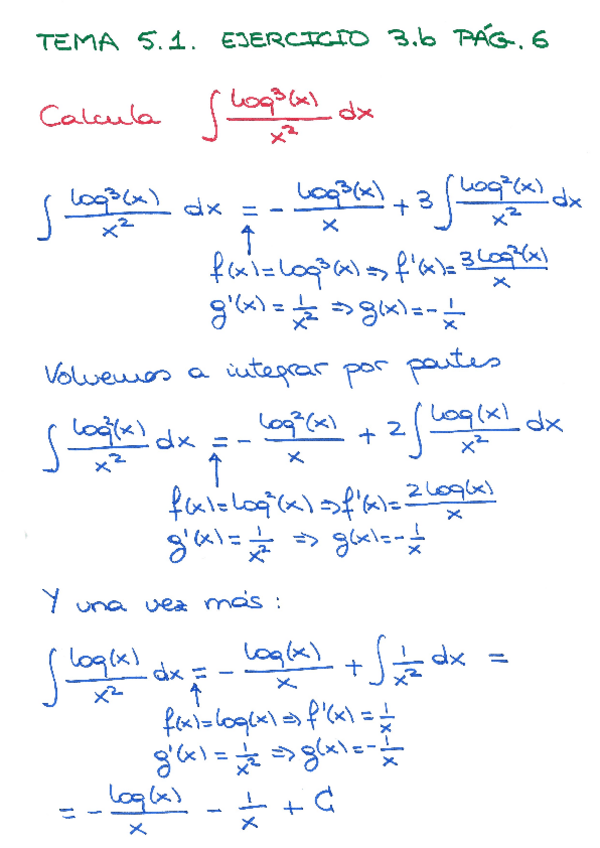 TEMA 5.1. EJERCICIO 3.b PÁG. 6
Calcula ∫ log³(x)/x² dx
∫ log³(x)/x² dx = - log³(x)/x + 3 ∫ log²(x)/x² dx
↑
f(x)=log³(x) ⇒ f'(x)= 3log²(x)/x
g'(x) = 1/x² ⇒ g(x)= - 1/x
Volvemos a integrar por partes
∫ log²(x)/x² dx = - log²(x)/x + 2 ∫ log(x)/x² dx
↑
f(x)=log²(x) ⇒ f'(x)= 2log(x)/x
g'(x) = 1/x² ⇒ g(x)= - 1/x
Y una vez más:
∫ log(x)/x² dx = - log(x)/x + ∫ 1/x² dx =
↑
f(x)=log(x) ⇒ f'(x) = 1/x
g'(x) = 1/x² ⇒ g(x)= - 1/x
= - log(x)/x - 1/x + C